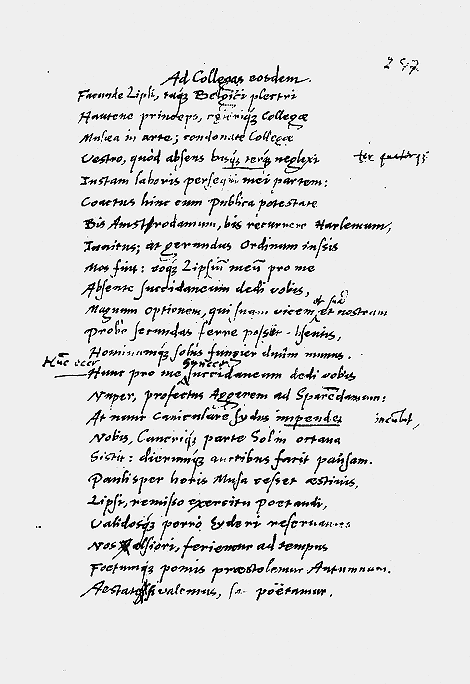 257.
Ad Collegas eosdem.
Facunde Lipsi, tuq3 Belgici plectri
Hautene princeps, ceteriq3 Collegæ
Musæa in arte; condonate Collegæ
Vestro, quòd absens bisq3 terq3 neglexi
ter quaterq3
Instam laboris persequi mei partem:
Coactus hinc cum publica potestate
Bis Amstrodamum, bis recurrere Harlemum,
Invitus; at gerundus Ordinum iussis
Mos fuit: Lipsiũ meũ pro me
Absente succidaneum dedi vobis,
Magnum optionem, qui suam vicem, et nostram
Probè secundas ferre posset
Hominumq3 solus fungier duûm munus.
Hunc pro me succidaneum dedi vobis
Nuper, profectus ad Sparẽdamum:
At nunc Caniculare sydus impendet
incubat,
Nobis, Cancriq3 parte Solem ortava
Sistit: dierumq3 auctibus facit pausam.
Paulisper horis Musa cesset æstivis,
Lipsi, remisso exercitu poëtandi,
Validosq3 porrò syderi reservantes
Nos alsiori, feriemur ad tempus
Foetumq3 pomis præstolemur Autumnum.
valemus, poëtamur.